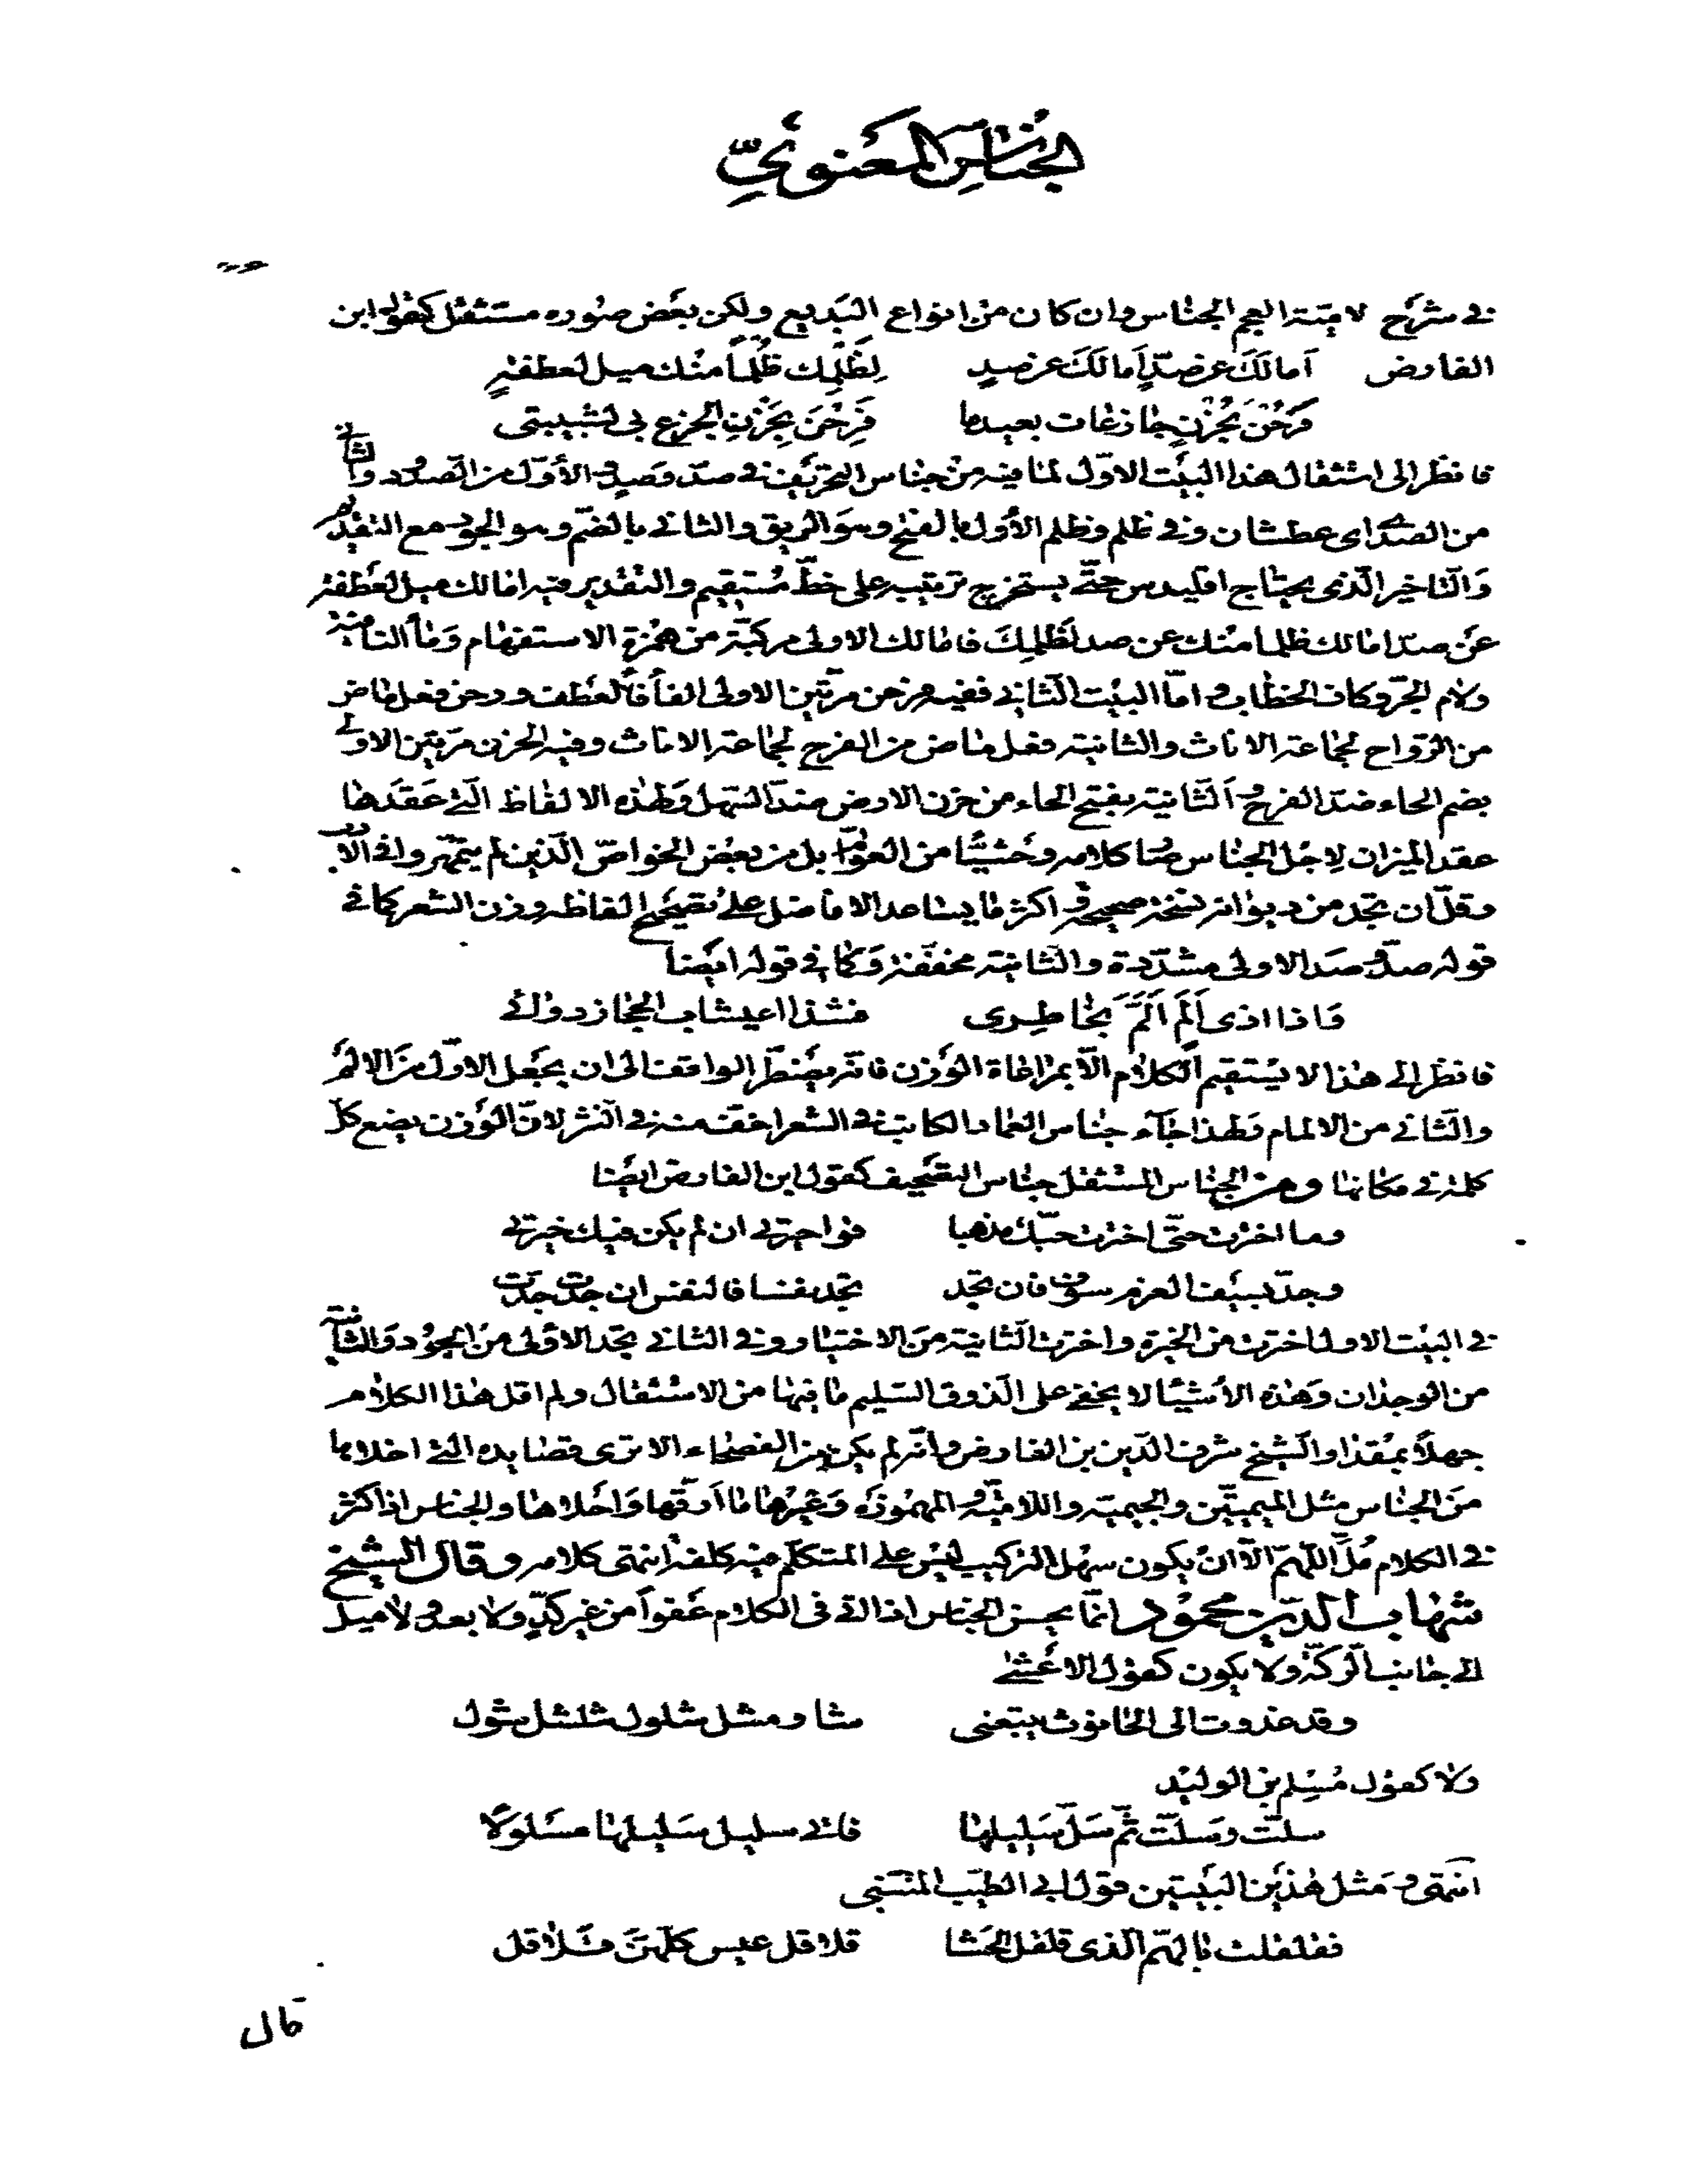 الجناس المعنوي
في شرح لامية العجم الجناس وان كان من انواع البديع ولكن بعض صوره مستثقل كقول ابن
الفارض أما لَكَ عن صدٍّ أمالَكَ عن صدٍ لِظَلْمِك ظُلماً منك ميل لعطفةٍ
فَرُحْنَ بحُزْنٍ جازعات بعيدما فَرِحْنَ بحَزْنِ الجزع بي لشبيبتي
فانظر الى استثقال هذا البيت الاول لما فيه من جناس التحريف في صدّ وصدٍ والأوّل من الصدود والثاني
من الصدا اى عطشان وفي ظلم وظلم الأول بالفتح وهو الريق والثاني بالضم وهو الجور مع التقديم
والتاخير الّذى يحتاج اقليدس حتّى يستخرج ترتيبه على خطّ مستقيم والتقدير فيه امالك ميل لعطفة
عن صدّ امالك ظلما منك عن صد لظلمِكَ فامالك الاولى مركبة من همزة الاستفهام وما النافية
ولام الجر وكاف الخطاب وامّا البيت الثاني ففيه فرحن مرّتين الاولى الفأ فأ لعطف ورحن فعل ماض
من الرواح لجماعة الاناث والثانية فعل ماض من الفرح لجماعة الاناث وفيه الحزن مرّتين الاولى
بضم الحاء ضدّ الفرح والثانية بفتح الحاء من حزن الارض ضدّ السّهل وهذه الالفاظ الّتي عَقَدَها
عقد الميزان لاجل الجناس صار كلامه وحشيّا من العوامّ بل من بعض الخواصّ الّذين لم يتمهّروا في الادب
وقلّ ان تجد من ديوانه نسخة صحيحة و اكثر ما يساعد الافاضل على تصحيح الفاظه وزن الشعر كما في
قوله صدّ وصد الاولى مشدّدة والثانية مخففة وكما في قوله ايضا
وَاذا اذى أَلَمٍ أَلَمَّ بخاطِرى فشذا اعيشاب الحجاز دوائي
فانظر الى هذا لا يستقيم الكلام الّا بمراعاة الوزن فانّه يضطرّ الواقف الى ان يجعل الاوّل من الالم
والثاني من الالمام ولهذا جآء جناس العماد الكاتب في الشعر اخفّ منه في النثر لانّ الوزن يضع كلّ
كلمة في مكانها ومن الجناس المستثقل جناس التصحيف كقول ابن الفارض ايضا
وما اخترت حتّى اخترت حبّك مذهبا فوا حيرتي ان لم يكن فيك خيرتي
وجدّ بسيف العزم سوف فان تجد تجد نفسا فالنفس ان جدت جدّت
في البيت الاول اخترت من الخبرة واخترت الثانية من الاختيار وفي الثاني تجد الاولى من الجود والثانية
من الوجدان وهذه الأشيئا لا يخفى على الذوق السّليم ما فيها من الاستثقال ولم اقل هذا الكلام
جهلاً بمقدار الشيخ شرف الدّين بن الفارض وانّه لم يكن من الفصحاء الا ترى قصايده الّتي اخلاها
من الجناس مثل الميميتين والجيمية واللاميّة والمهموزه وغيرها ما أرقّها وأحلاها والجناس اذا كثر
في الكلام مُلّ اللّهمّ الّا ان يكون سهل التركيب ليس على المتكلّم فيه كلفة انتهى كلامه وقال الشيخ
شهاب الدّين محمود انّما يحسن الجناس اذا اتى فى الكلام عفواً من غير كدٍّ ولا بعد ولا ميل
الى جانب الركّة ولا يكون كقول الاعشى
وقد غدوت الى الحانوت يتبعنى شاو مشل شلول شلشل شول
ولا كقول مُسلم بن الوليد
سلّت وسلّت ثمّ سلّ سليلها فاتى سليل سليلها مسلولا
انتهى ومثل هذين البيتين قول ابي الطيّب المتنبى
فقلقلت بالهمّ الّذى قلقل الحشا قلاقل عيس كلّهنّ قلاقل
قال